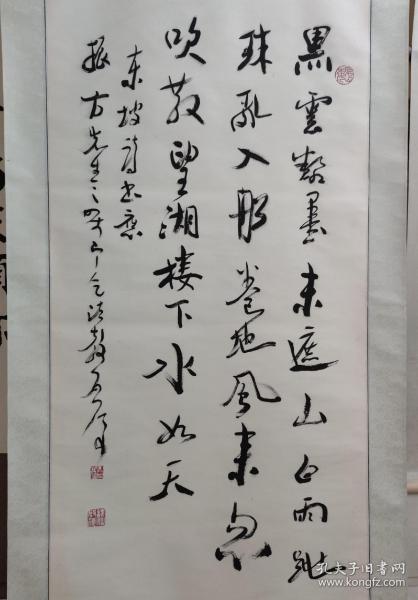 黑雲翻墨未遮山白雨跳
珠亂入船卷地風來忽
吹散望湖樓下水如天
東坡詩書應
振方先生之嘱即乞法教
孔夫子旧书网
www.kongfz.com